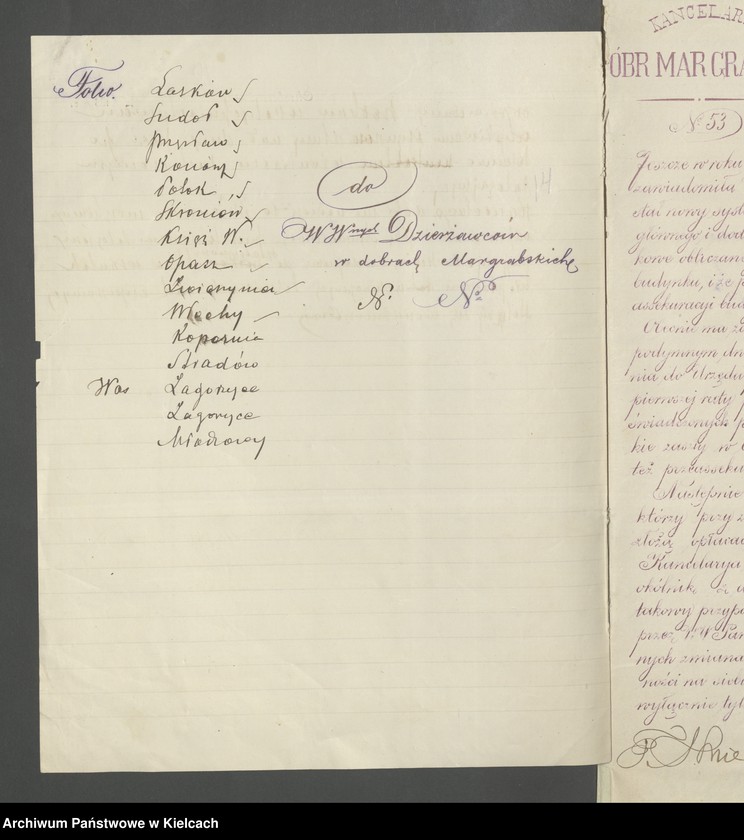 Folw. Lasków
Sudoł
Kozów
Potok
Skronów
Księż W.
Opasz
Zwierzyniec
Wschy
Kopernia
Stradów
Was Zagorzyce
Zagorzyce
Młodzawy
do
WWnych Dzierżawców
w dobrach Margrabskich
N. No
KANCELAR
ÓBR MARGRA
No 53
Jeszcze w roku
zawiadomiła
stał nowy syst
głównego i dod
kowe obliczan
budynku, i że p
assekuracyi bud
podymnym dn
nia do Urzędu
pierwszej raty
świadczonych p
kie zaszły w
też przeasseku
Następnie
którzy przy z
złożą opłaca
Kancelarya
okólnik
takowy przypo
przez WPan
nych zmiana
ności na siebi
wyłącznie tyl
Archiwum Państwowe w Kielcach